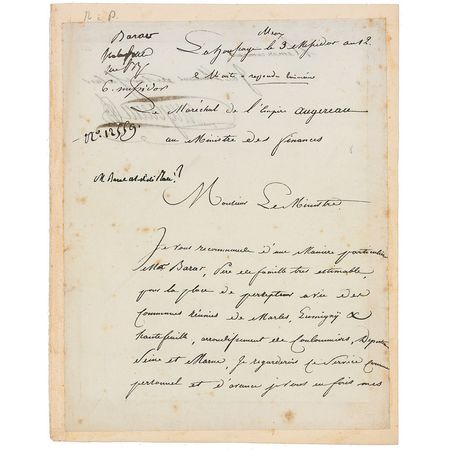 N. e P.
Barar
6. messidor
N.º 12559.
Lahoussaye le 3 Messidor an 12.
Le Maréchal de l'Empire augereau
au Ministre des finances
Monsieur Le Ministre.
Je vous recommande d'une Maniere particuliere
Barar, Pere de famille tres estimable,
pour la place de percepteur a vie des
Communes réunies de Marles, Lumigny &
hautefeuille, arrondissement de Coulommiers,
Seine et Marne, Je regarderois ce Service comme
personnel et d'avance je vous en fois mes